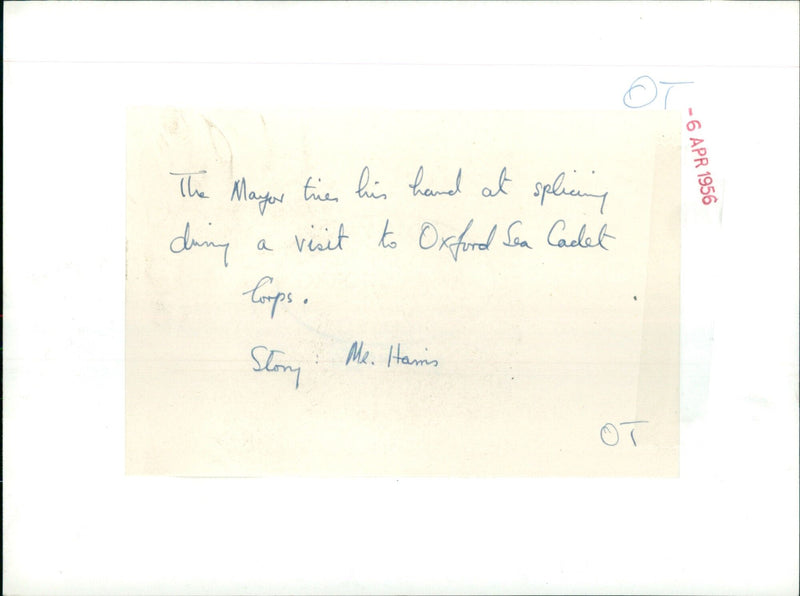 OT
- 6 APR 1956
The Mayor tries his hand at splicing
during a visit to Oxford Sea Cadet
Corps.
Story Mr. Harris
OT